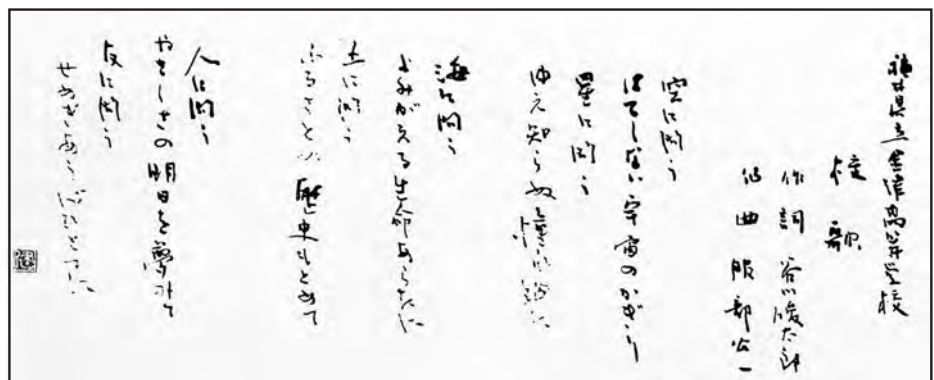 福井県立金津高等学校
校歌
作詞 谷川俊太郎
作曲 服部公一
空に問う
はてしない宇宙のかぎり
星に問う
ゆえ知らぬ憧れ
海に問う
よみがえる生命あらたに
土に問う
ふるさとの歴史もとめて
人に問う
やさしさの明日を夢みて
友に問う